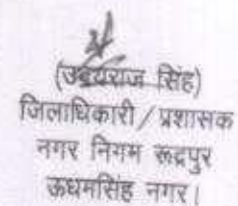 (उदयराज सिंह)
जिलाधिकारी / प्रशासक
नगर निगम रूद्रपुर
ऊधमसिंह नगर।